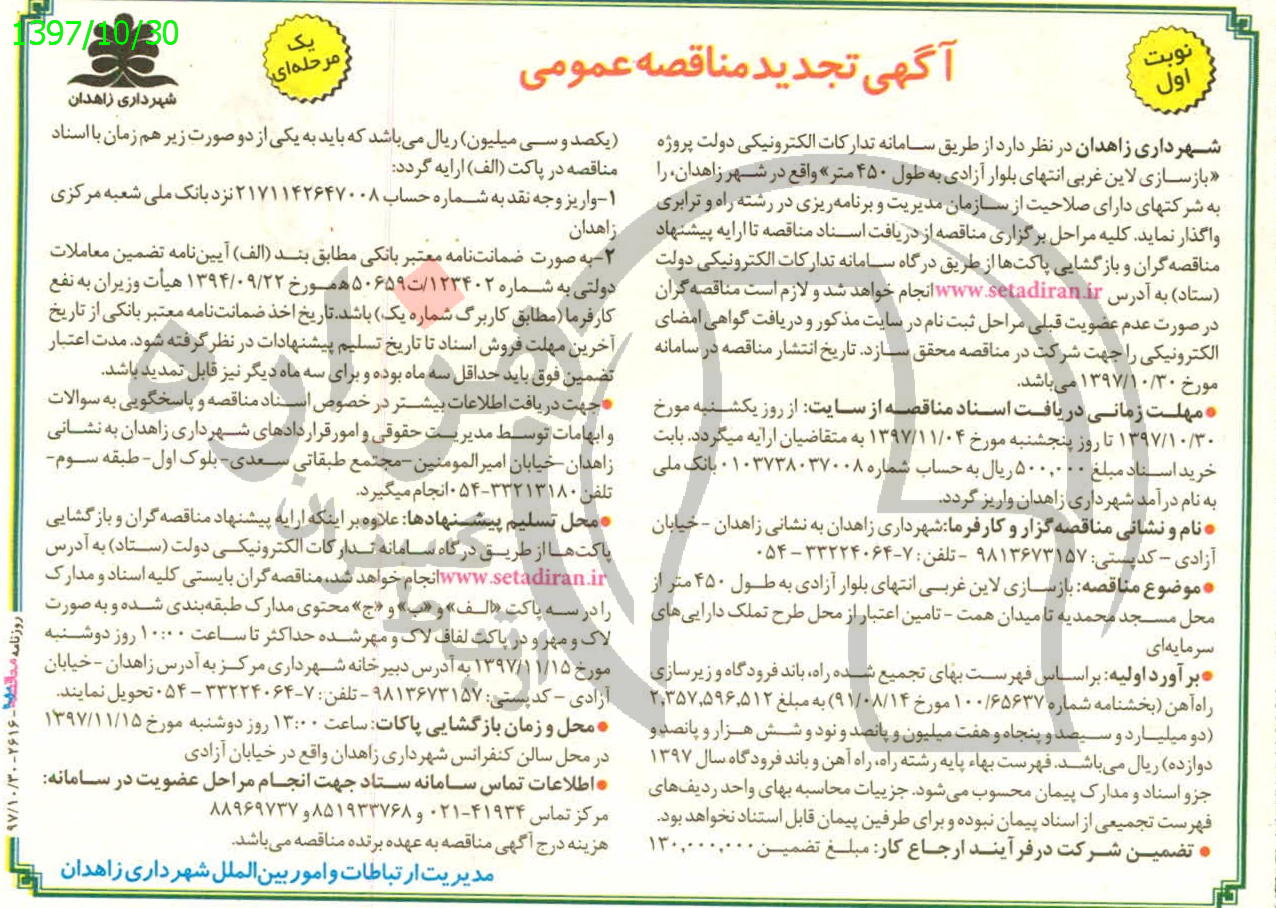 1397/10/30
شهرداری زاهدان
یک
مرحله‌ای
آگهی تجدید مناقصه عمومی
نوبت
اول
شهرداری زاهدان در نظر دارد از طریق سامانه تدارکات الکترونیکی دولت پروژه
«بازسازی لاین غربی انتهای بلوار آزادی به طول ۴۵۰ متر» واقع در شهر زاهدان، را
به شرکتهای دارای صلاحیت از سازمان مدیریت و برنامه‌ریزی در رشته راه و ترابری
واگذار نماید. کلیه مراحل برگزاری مناقصه از دریافت اسناد مناقصه تا ارایه پیشنهاد
مناقصه‌گران و بازگشایی پاکت‌ها از طریق درگاه سامانه تدارکات الکترونیکی دولت
(ستاد) به آدرس www.setadiran.ir انجام خواهد شد و لازم است مناقصه‌گران
در صورت عدم عضویت قبلی مراحل ثبت نام در سایت مذکور و دریافت گواهی امضای
الکترونیکی را جهت شرکت در مناقصه محقق سازد. تاریخ انتشار مناقصه در سامانه
مورخ ۱۳۹۷/۱۰/۳۰ می‌باشد.
●مهلت زمانی دریافت اسناد مناقصه از سایت: از روز یکشنبه مورخ
۱۳۹۷/۱۰/۳۰ تا روز پنجشنبه مورخ ۱۳۹۷/۱۱/۰۴ به متقاضیان ارایه میگردد. بابت
خرید اسناد مبلغ ۵۰۰,۰۰۰ ریال به حساب شماره ۰۱۰۳۷۳۸۰۳۷۰۰۸ بانک ملی
به نام درآمد شهرداری زاهدان واریز گردد.
●نام و نشانی مناقصه‌گزار و کارفرما:شهرداری زاهدان به نشانی زاهدان -خیابان
آزادی – کدپستی: ۹۸۱۳۶۷۳۱۵۷ - تلفن: ۷-۳۳۲۲۴۰۶۴ – ۰۵۴
●موضوع مناقصه: بازسازی لاین غربی انتهای بلوار آزادی به طول ۴۵۰ متر از
محل مسجد محمدیه تا میدان همت - تامین اعتبار از محل طرح تملک دارایی‌های
سرمایه‌ای
●برآورد اولیه: براساس فهرست بهای تجمیع شده راه، باند فرودگاه و زیرسازی
راه‌آهن (بخشنامه شماره ۱۰۰/۶۵۶۳۷ مورخ ۹۱/۰۸/۱۴) به مبلغ ۲,۳۵۷,۵۹۶,۵۱۲
(دو میلیارد و سیصد و پنجاه و هفت میلیون و پانصد و نود و شش هزار و پانصد و
دوازده) ریال می‌باشد. فهرست بهاء پایه رشته راه، راه آهن و باند فرودگاه سال ۱۳۹۷
جزو اسناد و مدارک پیمان محسوب می‌شود. جزییات محاسبه بهای واحد ردیف‌های
فهرست تجمیعی از اسناد پیمان نبوده و برای طرفین پیمان قابل استناد نخواهد بود.
● تضمین شرکت درفرآیند ارجاع کار: مبلغ تضمین ۱۳۰,۰۰۰,۰۰۰
(یکصد و سی میلیون) ریال می‌باشد که باید به یکی از دو صورت زیر هم زمان با اسناد
مناقصه در پاکت (الف) ارایه گردد:
۱-واریز وجه نقد به شماره حساب ۲۱۷۱۱۴۲۶۴۷۰۰۸ نزد بانک ملی شعبه مرکزی
زاهدان
۲-به صورت ضمانت‌نامه معتبر بانکی مطابق بند (الف) آیین‌نامه تضمین معاملات
دولتی به شماره ۱۲۳۴۰۲/ت۵۰۶۵۹ه‍مورخ ۱۳۹۴/۰۹/۲۲ هیأت وزیران به نفع
کارفرما (مطابق کاربرگ شماره یک) باشد.تاریخ اخذ ضمانت‌نامه معتبر بانکی از تاریخ
آخرین مهلت فروش اسناد تا تاریخ تسلیم پیشنهادات در نظر گرفته شود. مدت اعتبار
تضمین فوق باید حداقل سه ماه بوده و برای سه ماه دیگر نیز قابل تمدید باشد.
●جهت دریافت اطلاعات بیشتر در خصوص اسناد مناقصه و پاسخگویی به سوالات
و ابهامات توسط مدیریت حقوقی و امور قراردادهای شهرداری زاهدان به نشانی
زاهدان -خیابان امیرالمومنین -مجتمع طبقاتی سعدی- بلوک اول- طبقه سوم-
تلفن ۳۳۲۱۳۱۸۰-۰۵۴ انجام میگیرد.
●محل تسلیم پیشنهادها: علاوه‌بر اینکه ارایه پیشنهاد مناقصه‌گران و بازگشایی
پاکت‌ها از طریق درگاه سامانه تدارکات الکترونیکی دولت (ستاد) به آدرس
www.setadiran.ir انجام خواهد شد، مناقصه‌گران بایستی کلیه اسناد و مدارک
را در سه پاکت «الف» و «ب» و «ج» محتوی مدارک طبقه‌بندی شده و به صورت
لاک و مهر و در پاکت لفاف لاک و مهرشده حداکثر تا ساعت ۱۰:۰۰ روز دوشنبه
مورخ ۱۳۹۷/۱۱/۱۵ به آدرس دبیرخانه شهرداری مرکز به آدرس زاهدان -خیابان
آزادی – کدپستی: ۹۸۱۳۶۷۳۱۵۷ - تلفن: ۷-۳۳۲۲۴۰۶۴ – ۰۵۴ تحویل نمایند.
●محل و زمان بازگشایی پاکات: ساعت ۱۳:۰۰ روز دوشنبه مورخ ۱۳۹۷/۱۱/۱۵
در محل سالن کنفرانس شهرداری زاهدان واقع در خیابان آزادی
●اطلاعات تماس سامانه ستاد جهت انجام مراحل عضویت در سامانه:
مرکز تماس ۴۱۹۳۴-۰۲۱ و ۸۵۱۹۳۳۷۶۸ و ۸۸۹۶۹۷۳۷
هزینه درج آگهی مناقصه به عهده برنده مناقصه می‌باشد.
مدیریت ارتباطات و امور بین‌الملل شهرداری زاهدان
روزنامه مناقصه - ۲۶۱۶ - ۹۷/۱۰/۳۰
هزاره